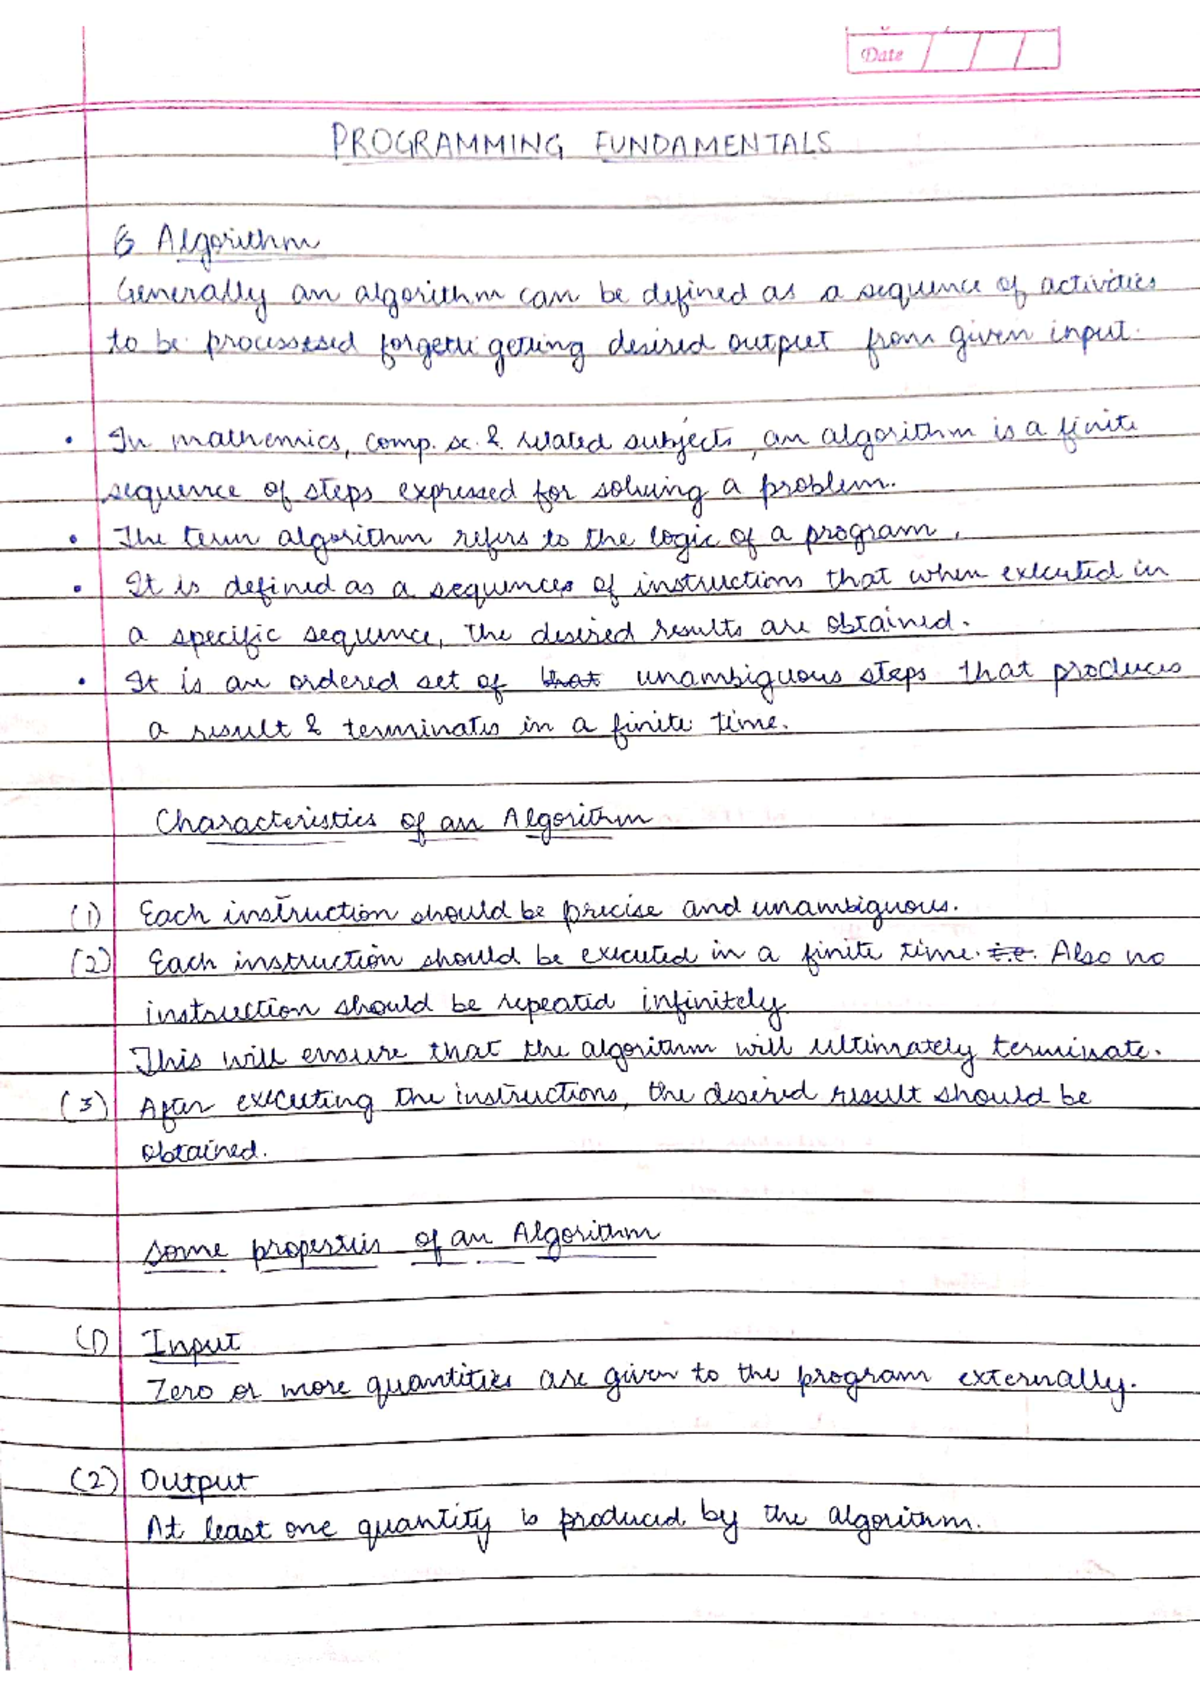 Date
PROGRAMMING FUNDAMENTALS
Algorithm
Generally an algorithm can be defined as a sequence of activities
to be processesed getting desired output from given input.
• In mathemics, comp. sc. & related subjects, an algorithm is a finite
sequence of steps expressed for solving a problem.
• The term algorithm refers to the logic of a program.
• It is defined as a sequences of instructions that when executed in
a specific sequence, the desired results are obtained.
• It is an ordered set of that unambiguous steps that produces
a result & terminates in a finite time.
Characteristics of an Algorithm
(1) Each instruction should be precise and unambiguous.
(2) Each instruction should be executed in a finite time. i.e. Also no
instruction should be repeated infinitely
This will ensure that the algorithm will ultimately terminate.
(3) After executing the instructions, the desired result should be
obtained.
Some properties of an Algorithm
(1) Input
Zero or more quantities are given to the program externally.
(2) Output
At least one quantity is produced by the algorithm.